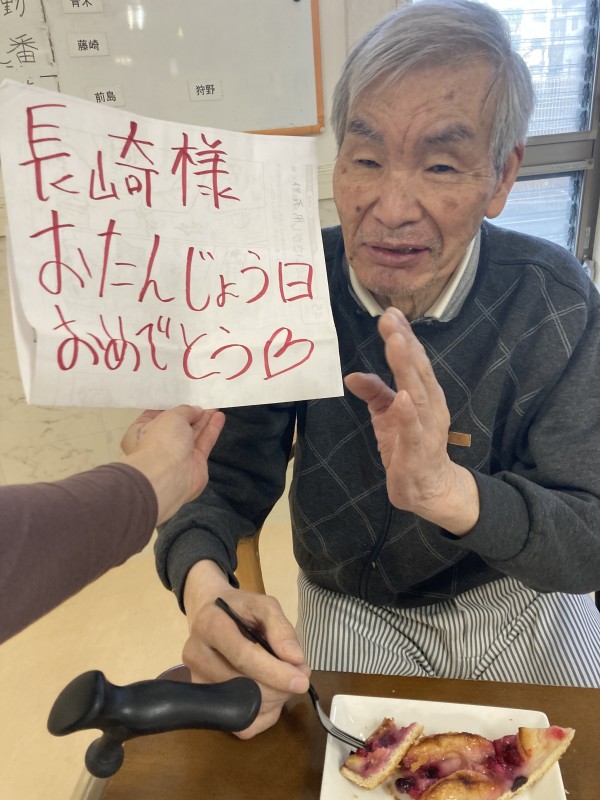 青木
番
藤崎
前島
狩野
長崎様
おたんじょう日
おめでとう♡